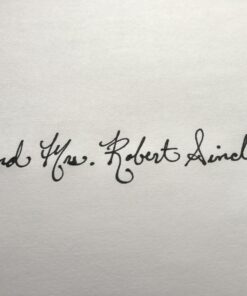 nd Mrs. Robert Sincl